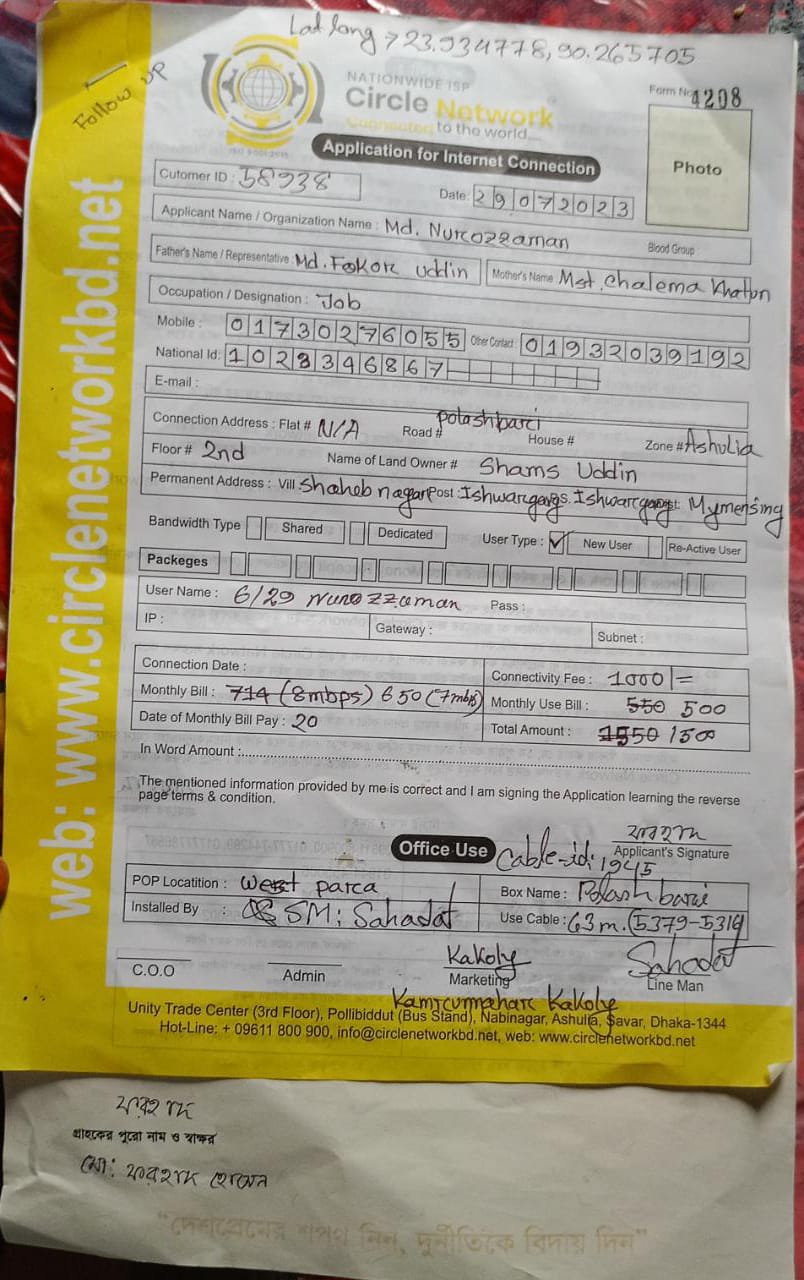 Lat long > 23.934778, 90.265705
Follow up
NATIONWIDE ISP
Circle Network
Connecting to the world....
ISO 9001:2015
Form No. 4208
Application for Internet Connection
Photo
Cutomer ID : 58938
Date: 29072023
Applicant Name / Organization Name : Md. Nurozzaman
Blood Group
Father's Name / Representative : Md. Fokor Uddin Mother's Name Mst. Chalema Khatun
Occupation / Designation : Job
Mobile : 01730276055 Other Contact 01932039192
National Id: 1028346867
E-mail :
Connection Address : Flat # N/A Road # Polashbari House # Zone # Ashulia
Floor # 2nd Name of Land Owner # Shams Uddin
Permanent Address : Vill Shaheb nagar Post : Ishwargang P.S. Ishwargang Dist: Mymensing
Bandwidth Type Shared Dedicated User Type : ✓ New User Re-Active User
Packeges
User Name : 6/29 Nurozzaman Pass :
IP : Gateway : Subnet :
Connection Date : Connectivity Fee : 1000/=
Monthly Bill : 714 (8mbps) 650 (7mbps) Monthly Use Bill : 550 500
Date of Monthly Bill Pay : 20 Total Amount : 1550 1500
In Word Amount :
The mentioned information provided by me is correct and I am signing the Application learning the reverse
page terms & condition.
ফরহাদ
Applicant's Signature
Office Use Cable-id: 1945
POP Locatition : West para Box Name : Polashbari
Installed By : SM: Sahadat Use Cable : 63 m. (5379-5316)
Kakoly Sahadat
C.O.O Admin Marketing Line Man
Kamrunnahar Kakoly
Unity Trade Center (3rd Floor), Pollibiddut (Bus Stand), Nabinagar, Ashulia, Savar, Dhaka-1344
Hot-Line: + 09611 800 900, info@circlenetworkbd.net, web: www.circlenetworkbd.net
web: www.circlenetworkbd.net
ফরহাদ
গ্রাহকের পুরো নাম ও স্বাক্ষর
মো: ফরহাদ হোসেন
"দেশপ্রেমের শপথ নিন, দুর্নীতিকে বিদায় দিন"